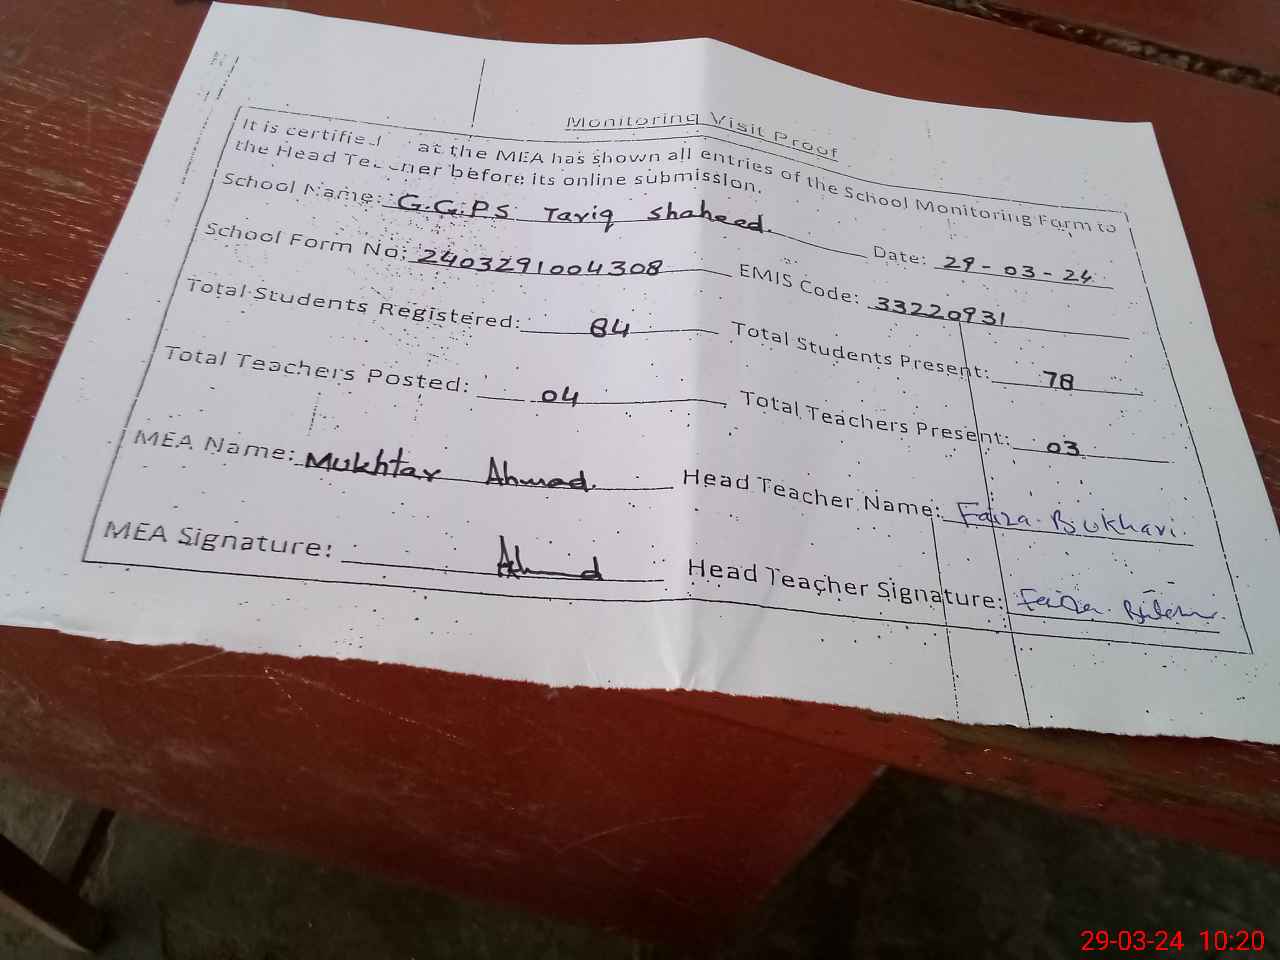 Monitoring Visit Proof
It is certified at the MEA has shown all entries of the School Monitoring Form to
the Head Teacher before its online submission.
School Name: G.G.P.S Tariq Shaheed. Date: 29-03-24
School Form No: 2403291004308 EMIS Code: 33220931
Total Students Registered: 84 Total Students Present: 78
Total Teachers Posted: 04 Total Teachers Present: 03
MEA Name: Mukhtar Ahmad. Head Teacher Name: Faiza Bukhari.
MEA Signature: Ahmad Head Teacher Signature: Faiza
29-03-24 10:20